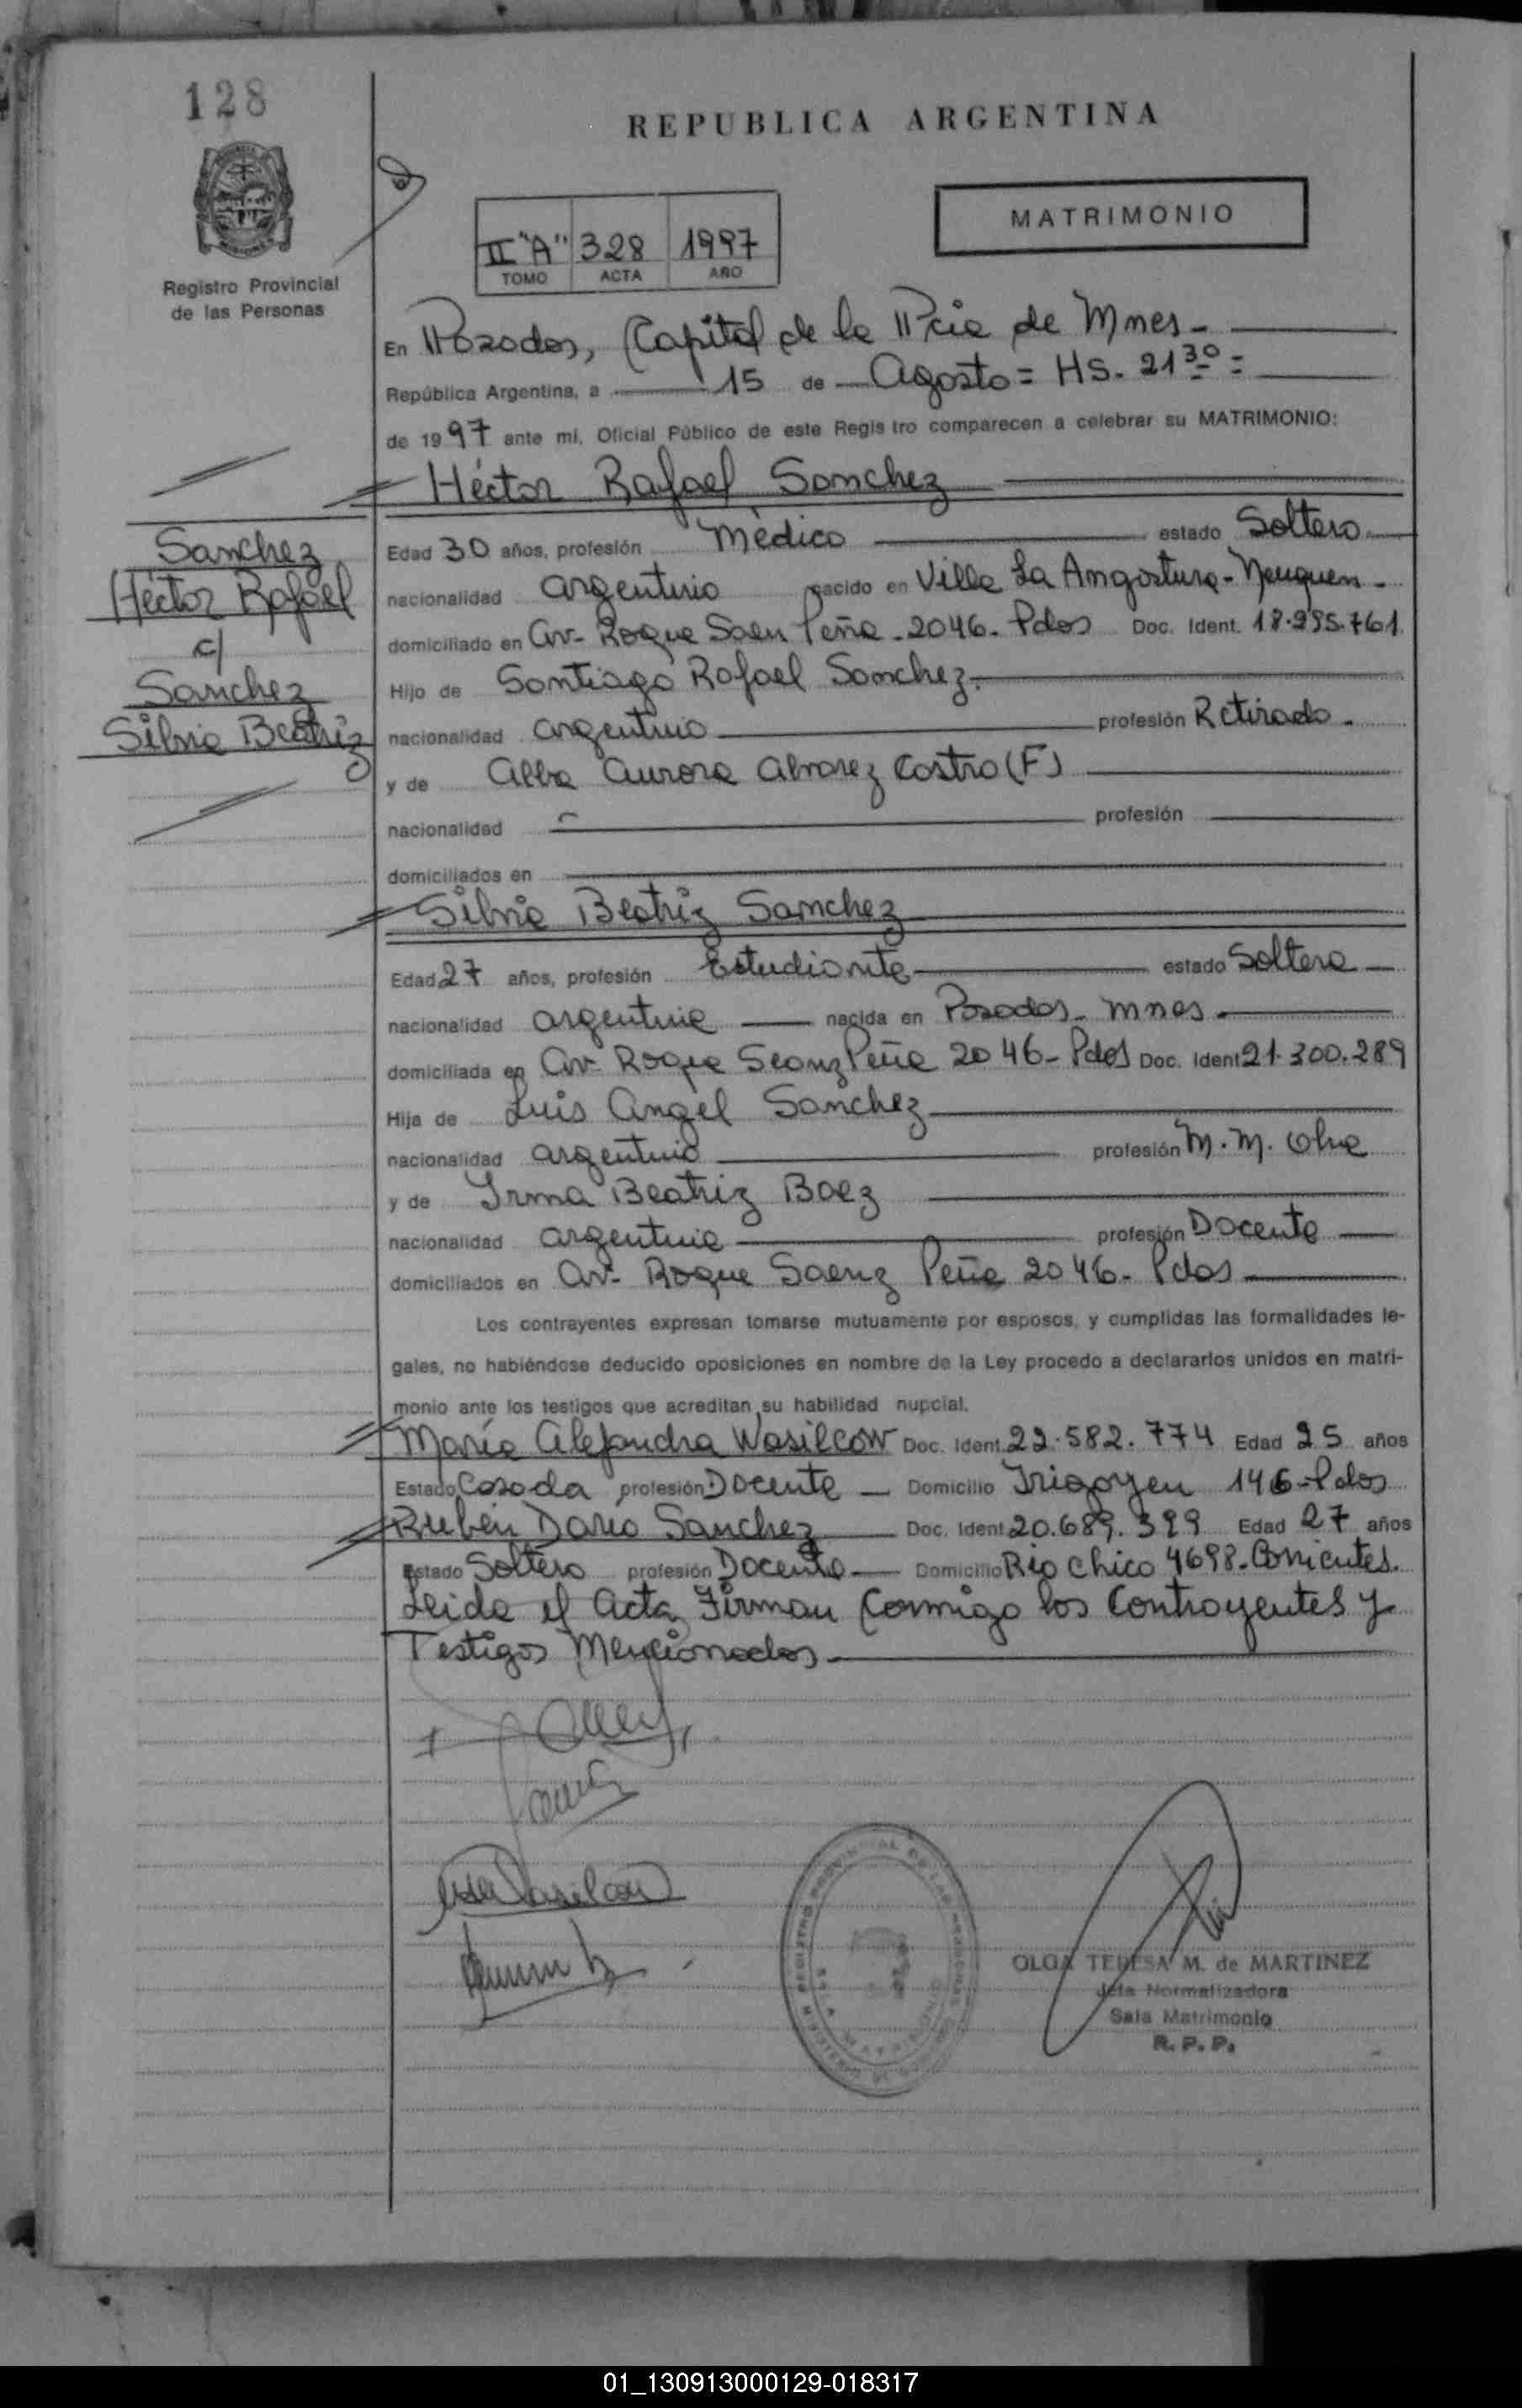 128
REPUBLICA ARGENTINA
MATRIMONIO
II "A" 328 1997
TOMO ACTA AÑO
Registro Provincial
de las Personas
En Posadas, Capital de la Pcia de Mnes -
República Argentina, a 15 de Agosto = HS. 21 30 =
de 1997 ante mi, Oficial Público de este Registro comparecen a celebrar su MATRIMONIO:
Héctor Rafael Sanchez
Sanchez
Héctor Rafael
c/
Sanchez
Silvia Beatriz
Edad 30 años, profesión Médico estado Soltero
nacionalidad argentino nacido en Villa La Angostura - Neuquen -
domiciliado en Av- Roque Saen Peña - 2046 - Pdas Doc. Ident. 18.295.761
Hijo de Santiago Rafael Sanchez
nacionalidad argentino profesión Retirado.
y de Alba Aurora Alvarez Castro (F)
nacionalidad profesión
domiciliados en
Silvia Beatriz Sanchez
Edad 27 años, profesión Estudiante estado Soltera
nacionalidad argentina nacida en Posadas - Mnes
domiciliada en Av. Roque Seanz Peña 2046 - Pdas Doc. Ident 21.300.289
Hija de Luis Angel Sanchez
nacionalidad argentino profesión M. M. Obra
y de Irma Beatriz Baez
nacionalidad argentina profesión Docente
domiciliados en Av- Roque Saenz Peña 2046 - Pdas
Los contrayentes expresan tomarse mutuamente por esposos, y cumplidas las formalidades le-
gales, no habiéndose deducido oposiciones en nombre de la Ley procedo a declararlos unidos en matri-
monio ante los testigos que acreditan su habilidad nupcial.
María Alejandra Wasilcow Doc. Ident. 22.582.774 Edad 25 años
Estado Casada profesión Docente Domicilio Irigoyen 146 - Pdas
Rubén Dario Sanchez Doc. Ident 20.689.399 Edad 27 años
Estado Soltero profesión Docente Domicilio Rio Chico 4698 - Corrientes.
Leida el Acta, Firman Conmigo los Contrayentes y
Testigos Mencionados
OLGA TERESA M. de MARTINEZ
Jefa Normalizadora
Sala Matrimonio
R. P. P.
01_130913000129-018317